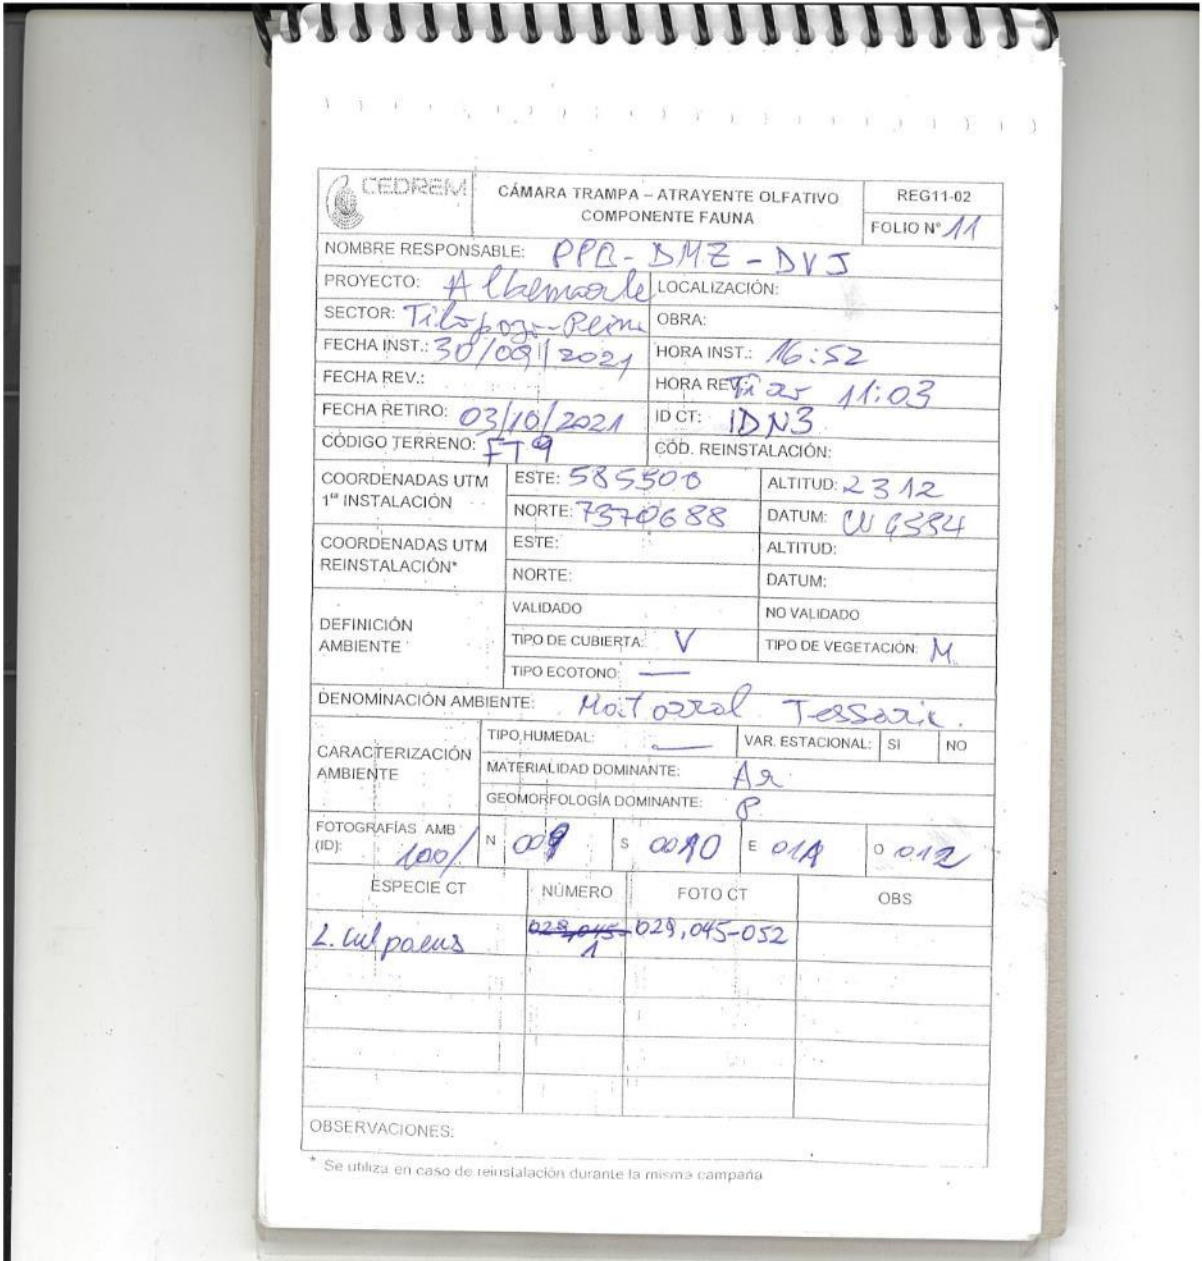 CEDREM
CÁMARA TRAMPA – ATRAYENTE OLFATIVO
COMPONENTE FAUNA
REG11-02
FOLIO N° 11
NOMBRE RESPONSABLE: PPR - DMZ - DVJ
PROYECTO: Albemarle LOCALIZACIÓN:
SECTOR: Tilopozo-Peine OBRA:
FECHA INST.: 30/09/2021 HORA INST.: 16:52
FECHA REV.: HORA REV.: 11:03
FECHA RETIRO: 03/10/2021 ID CT: IDN3
CÓDIGO TERRENO: FT9 CÓD. REINSTALACIÓN:
COORDENADAS UTM
1ra INSTALACIÓN
ESTE: 585500 ALTITUD: 2312
NORTE: 7370688 DATUM:
COORDENADAS UTM
REINSTALACIÓN*
ESTE: ALTITUD:
NORTE: DATUM:
DEFINICIÓN
AMBIENTE
VALIDADO NO VALIDADO
TIPO DE CUBIERTA: V TIPO DE VEGETACIÓN: M
TIPO ECOTONO: —
DENOMINACIÓN AMBIENTE: Matorral Tessaria.
CARACTERIZACIÓN
AMBIENTE
TIPO HUMEDAL: — VAR. ESTACIONAL: SI NO
MATERIALIDAD DOMINANTE: Ar
GEOMORFOLOGÍA DOMINANTE: P
FOTOGRAFÍAS AMB
(ID): 100/ N 009 S 0010 E 011 O 012
ESPECIE CT NÚMERO FOTO CT OBS
L. culpaeus 1 029,045-052
OBSERVACIONES:
* Se utiliza en caso de reinstalación durante la misma campaña